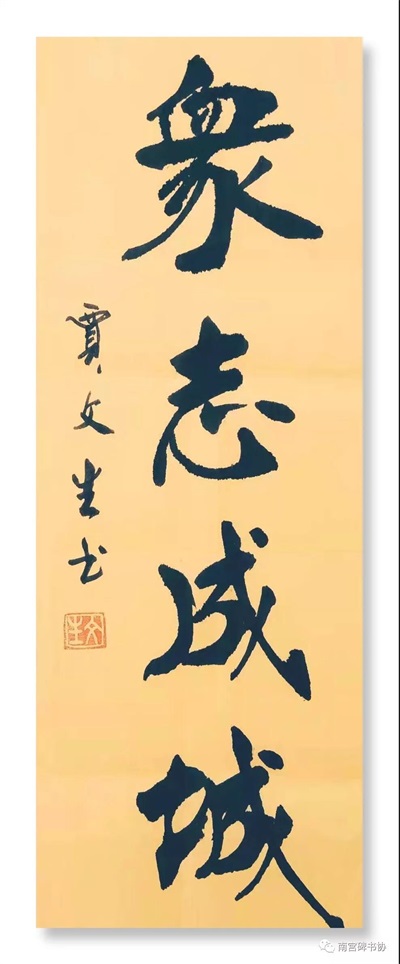 眾志成城
贾文生书
文生
南宫碑书协